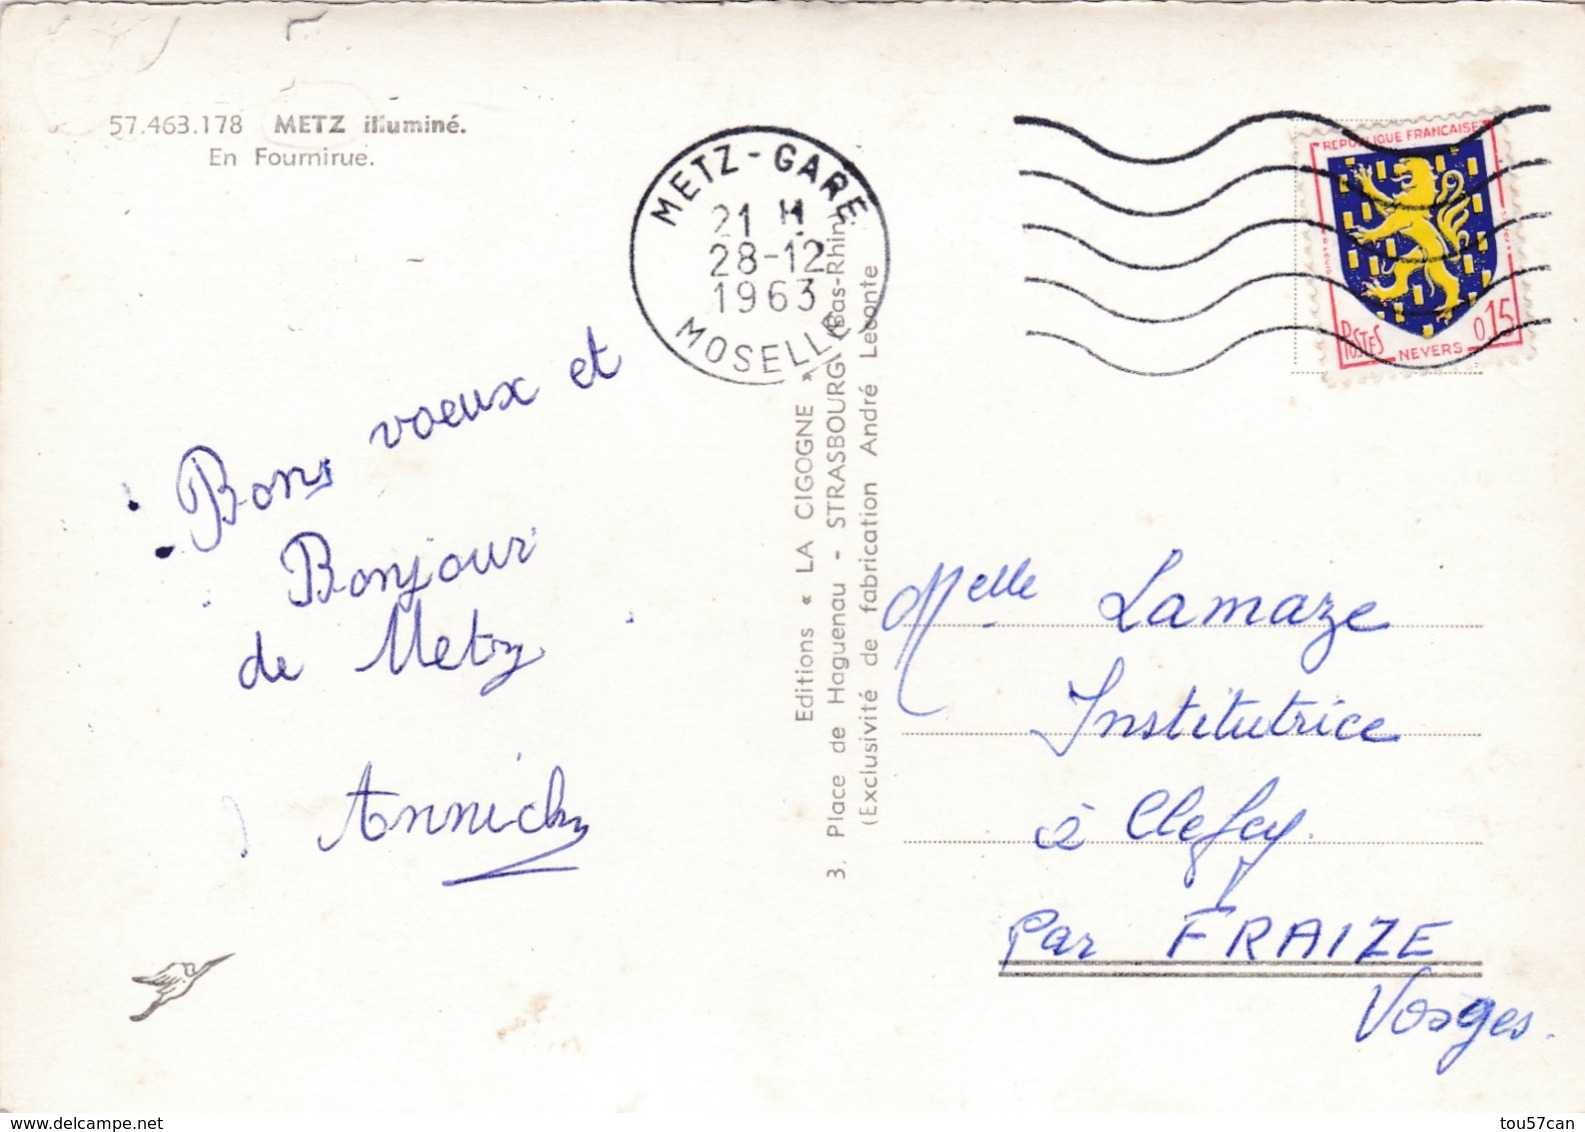 57.463.178 METZ illuminé.
En Fournirue.
METZ-GARE
21 H
28-12
1963
MOSELLE
REPUBLIQUE FRANCAISE
POSTES
NEVERS
0,15
Bons voeux et
Bonjour
de Metz
Annick
Editions « LA CIGOGNE »
3, Place de Haguenau - STRASBOURG (Bas-Rhin)
(Exclusivité de fabrication André Leconte
Melle Lamaze
Institutrice
à Clefcy.
par FRAIZE
Vosges.
www.delcampe.net
tou57can